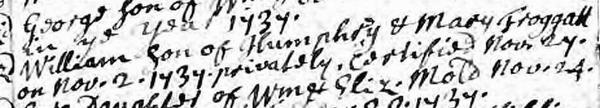 George Son of W
in ye Year 1737.
William Son of Humphry & Mary Froggatt
on Nov. 2. 1737. privately. Certified Nov. 27.
Daughter of Wm & Eliz. Mold Nov. 24.
1737.